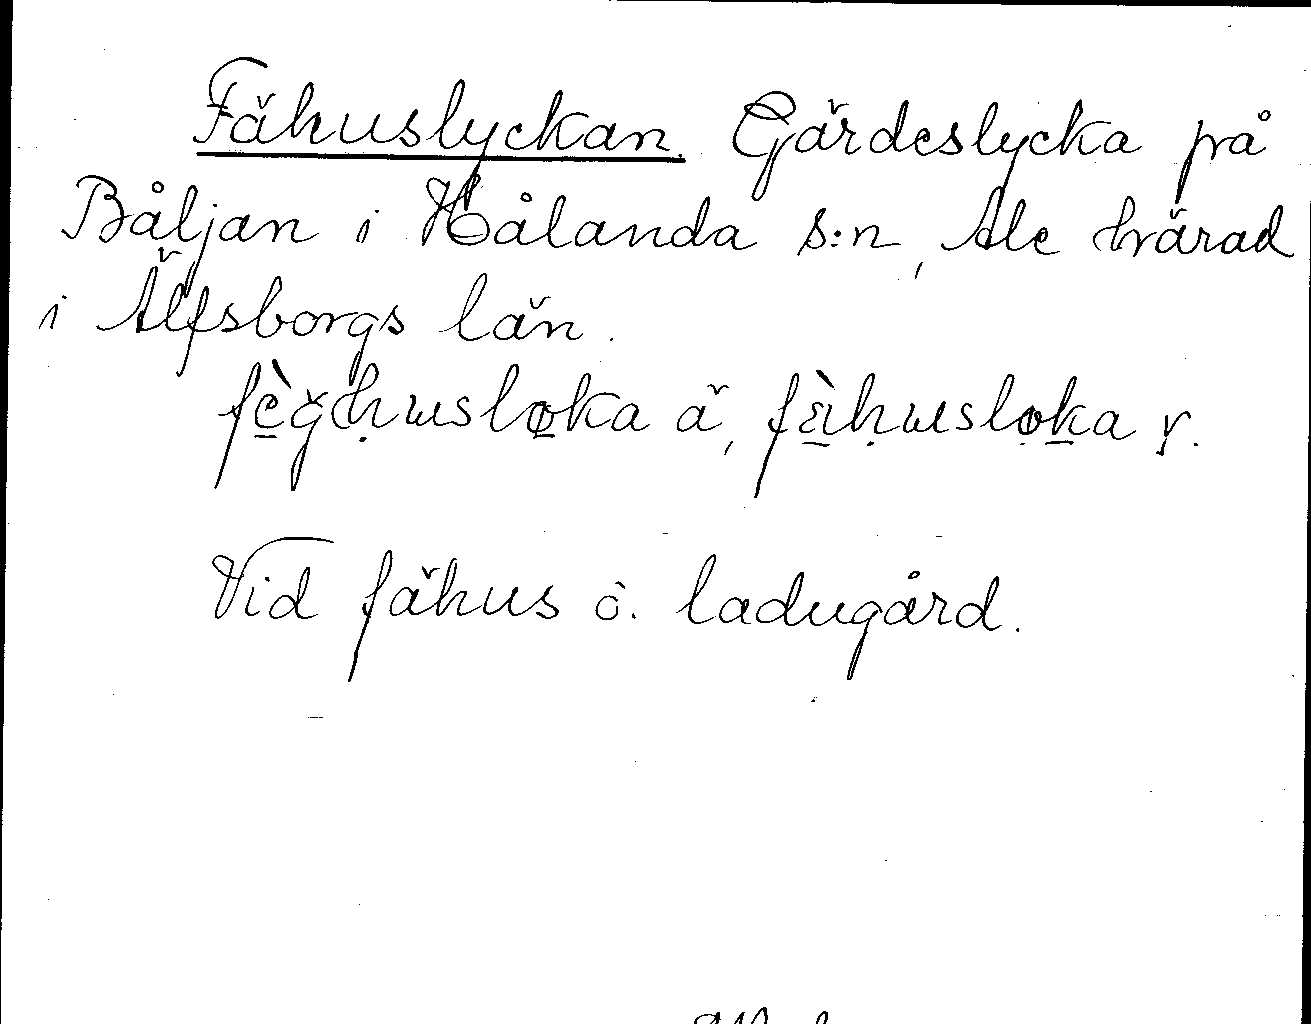 Fähuslyckan. Gärdeslycka på
Båljan i Hålanda s:n, Ale härad
i Älfsborgs län.
ä, y.
Vid fähus o. ladugård.